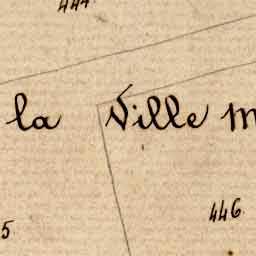 444
la Ville M
446
5